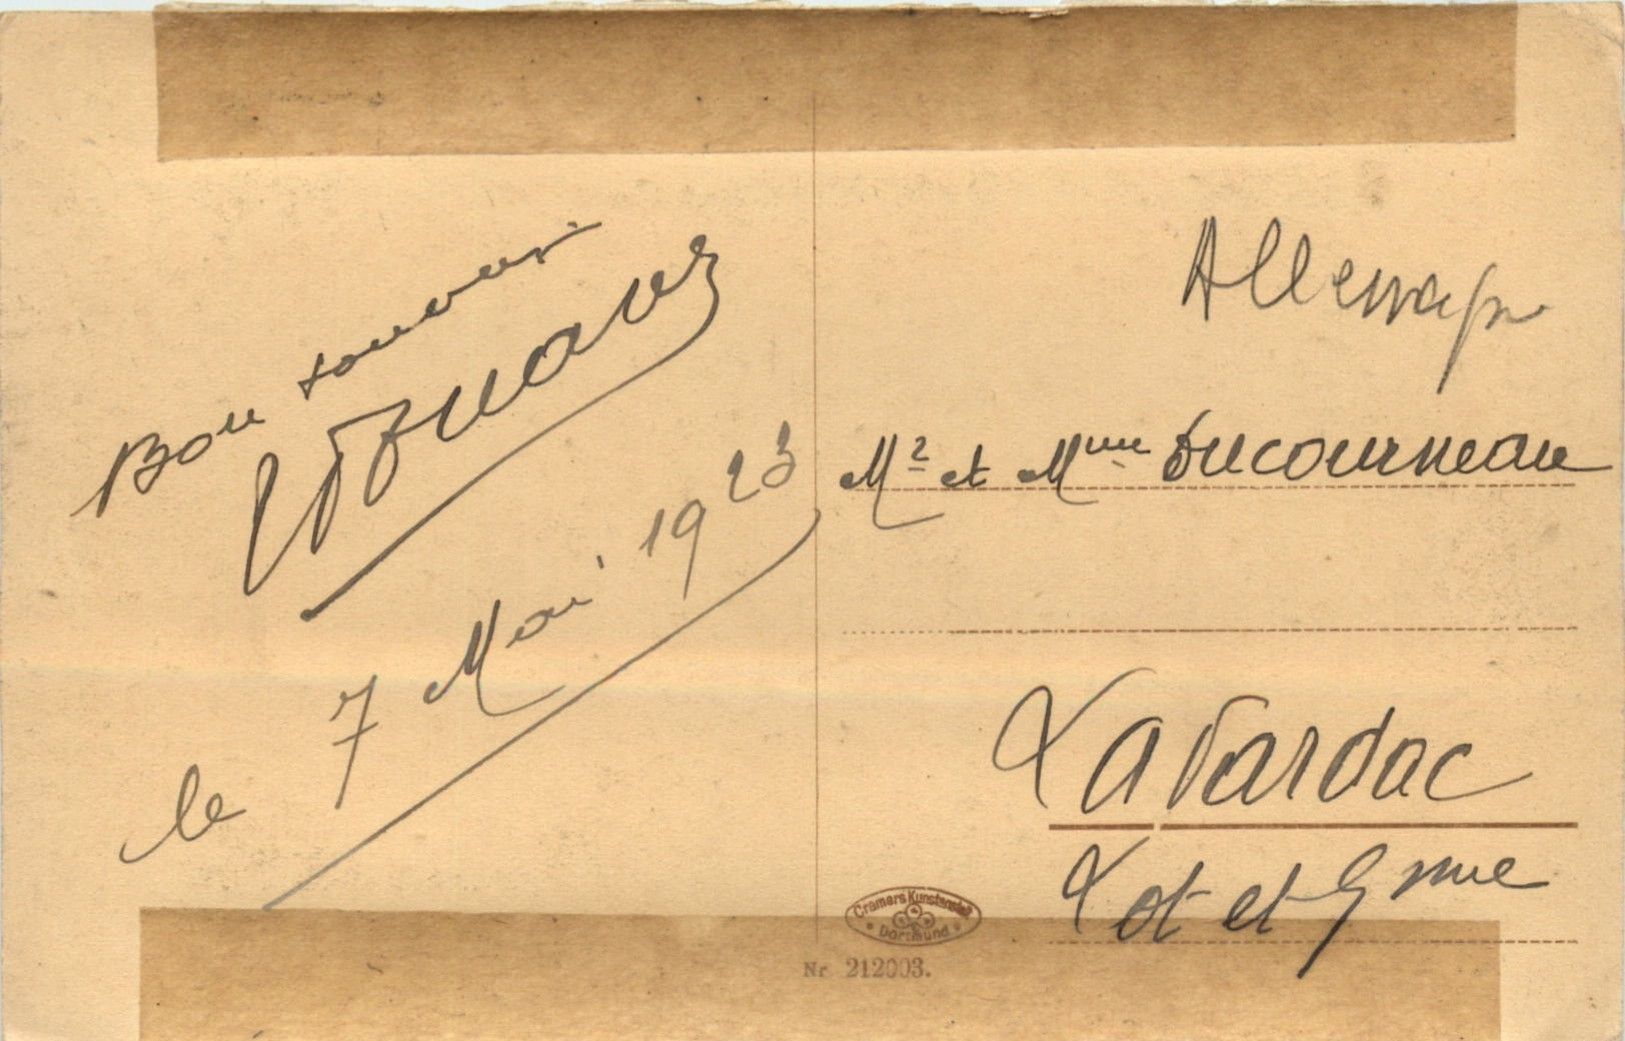 Bon souvenir
le 7 Mai 1923
Allemagne
Mr et Mme Ducourneau
Lavardac
Lot et Gnne
Cramers Kunstanstalt
Dortmund
Nr 212003.